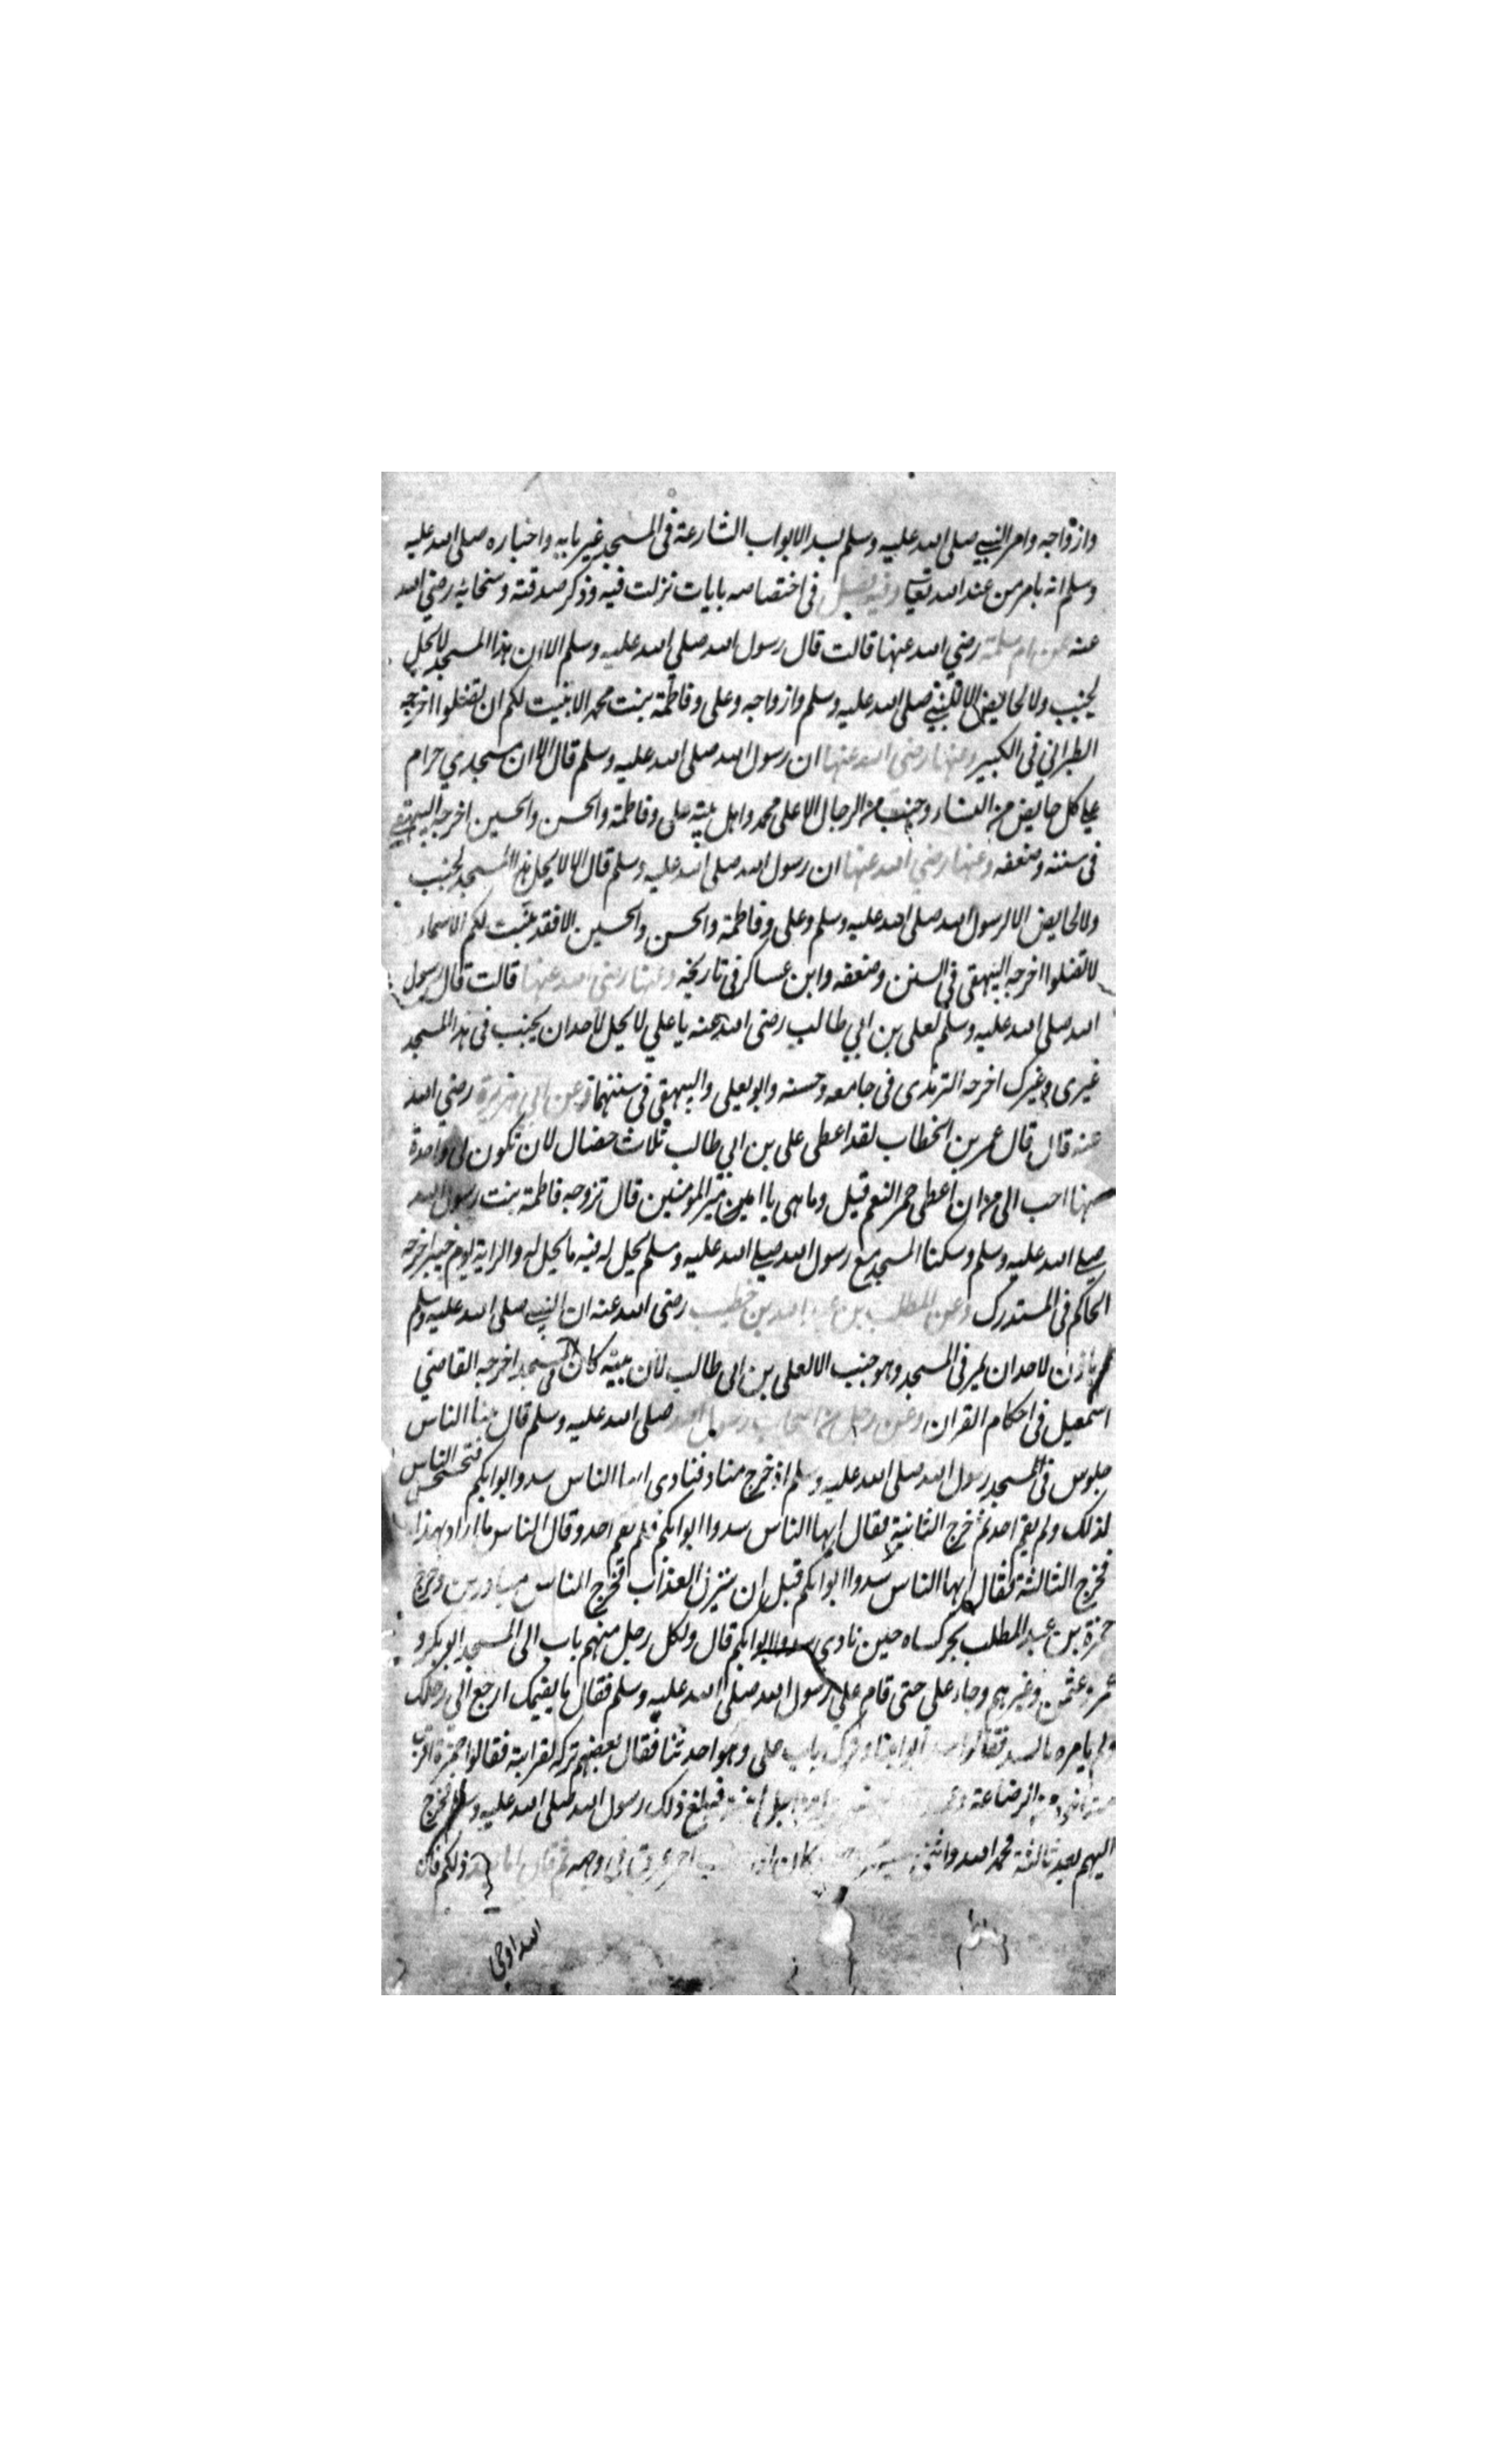 وازواجه وامر النبي صلى الله عليه وسلم بسد الابواب الشارعة فى المسجد غير بابه واخباره صلى الله عليه
وسلم انه بامر من عند الله تعالى وفيه فصل فى اختصاصه بايات نزلت فيه وذكر صدقته وسخائه رضي الله
عنه عن ام سلمة رضي الله عنها قالت قال رسول الله صلي الله عليه وسلم الا ان هذا المسجد لا يحل
لجنب ولا لحايض الا للنبي صلى الله عليه وسلم وازواجه وعلى وفاطمة بنت محمد الا بينت لكم ان تضلوا اخرجه
الطبراني فى الكبير وعنها رضى الله عنها ان رسول الله صلى الله عليه وسلم قال الا ان مسجدي حرام
على كل حايض من النساء وجنب من الرجال الا على محمد واهل بيته على وفاطمة والحسن والحسين اخرجه البيهقي
فى سننه وضعفه وعنها رضي الله عنها ان رسول الله صلى الله عليه وسلم قال الا لا يحل هذا المسجد لجنب
ولا لحايض الا لرسول الله صلى الله عليه وسلم وعلى وفاطمة والحسن والحسين الا فقد بينت لكم الاسماء
لا تضلوا اخرجه البيهقى في السنن وضعفه وابن عساكر فى تاريخه وعنها رضى الله عنها قالت قال رسول
الله صلى الله عليه وسلم لعلى بن ابي طالب رضى الله عنه يا علي لا يحل لاحد ان يجنب فى هذا المسجد
غيرى وغيرك اخرجه الترمذى فى جامعه وحسنه وابو يعلى والبيهقى فى سننهما وعن ابي هريرة رضي الله
عنه قال قال عمر بن الخطاب لقد اعطى على بن ابي طالب ثلاث خصال لان تكون لى واحدة
منها احب الى من ان اعطى حمر النعم قيل وما هى يا امير المومنين قال تزوجه فاطمة بنت رسول الله
صلى الله عليه وسلم وسكناه المسجد مع رسول الله صلى الله عليه وسلم يحل له فيه ما يحل له والراية يوم خيبر اخرجه
الحاكم فى المستدرك وعن المطلب بن عبد الله بن حنطب رضى الله عنه ان النبي صلى الله عليه وسلم
لم ياذن لاحد ان يمر فى المسجد وهو جنب الا لعلى بن ابى طالب لان بيته كان فى المسجد اخرجه القاضي
اسمعيل فى احكام القران وعن رجل من اصحاب رسول الله صلى الله عليه وسلم قال بينا الناس
جلوس فى المسجد رسول الله صلى الله عليه وسلم اذ خرج مناد فنادى ايها الناس سدوا ابوابكم فتحسحس الناس
لذلك ولم يقم احد ثم خرج الثانية فقال ايها الناس سدوا ابوابكم فلم يقم احد وقال الناس ما اراد بهذا
فخرج الثالثة فقال ايها الناس سدوا ابوابكم قبل ان ينزل العذاب فخرج الناس مبادرين وخرج
حمزة بن عبد المطلب يجر كساه حين نادى سدوا ابوابكم قال ولكل رجل منهم باب الى المسجد ابو بكر و
عمر وعثمن وغيرهم وجاء علي حتى قام علي رسول الله صلى الله عليه وسلم فقال ما يقيمك ارجع الى رحلك
ولم يامره بالسد فقالوا سد ابوابنا وترك باب على وهو احدثنا فقال بعضهم تركه لقرابته فقالوا حمزة اقرب
منه اخوه من الرضاعة وعمه فبلغ ذلك رسول الله صلى الله عليه وسلم فخرج
اليهم بعد ثالثة فحمد الله واثنى عليه فى وجهه ثم قال اما بعد ذلكم فان
الله اوحى